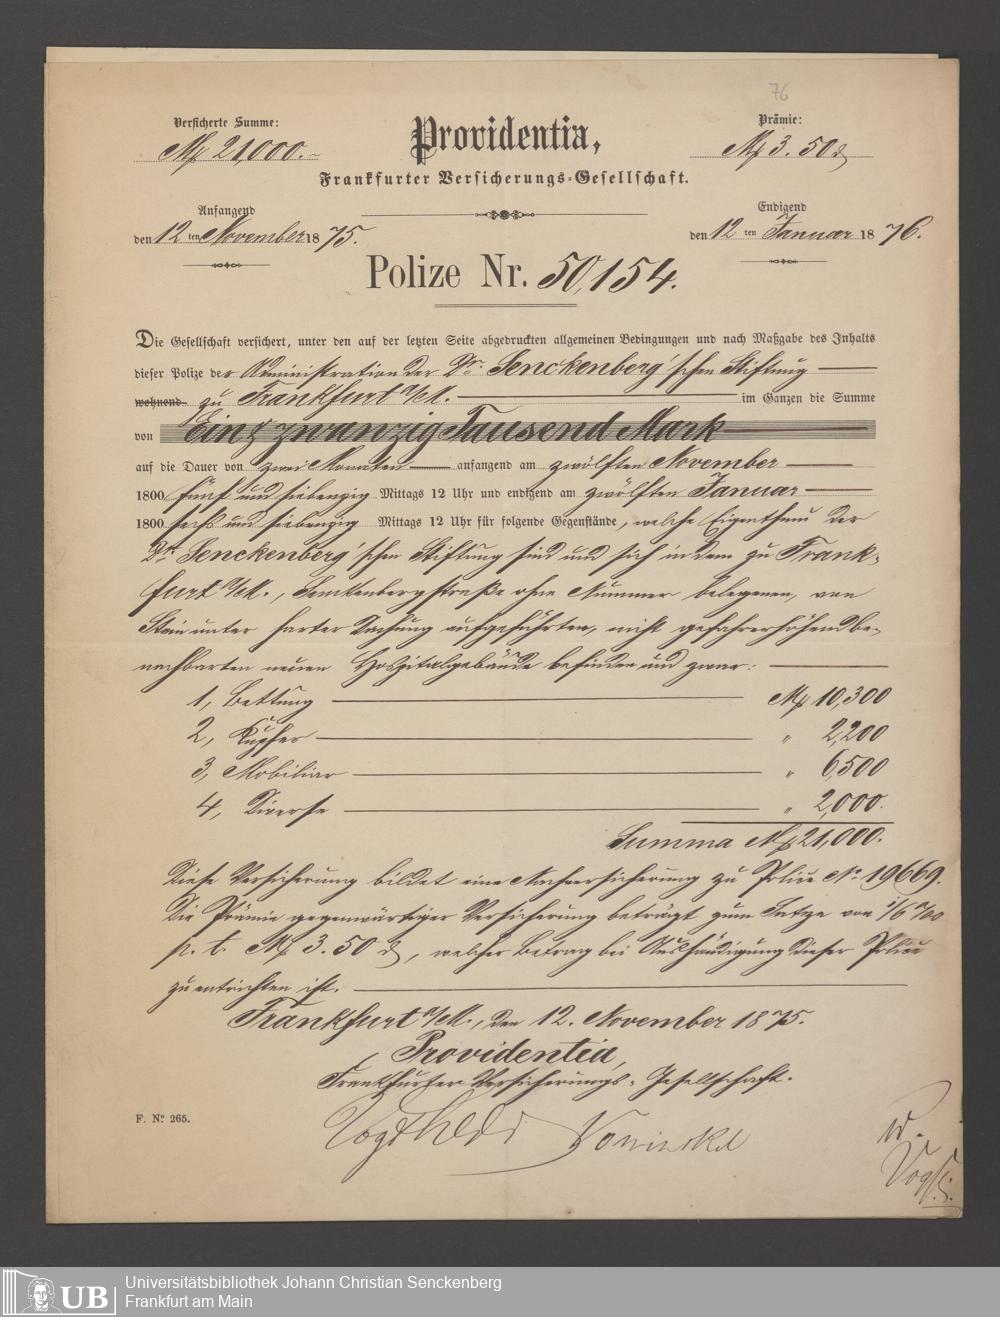 76
Versicherte Summe:
Mk 21,000.~
Providentia,
Frankfurter Versicherungs-Gesellschaft.
Prämie:
Mk 3. 50 ₰
Anfangend
den 12 ten November 1875.
Endigend
den 12 ten Januar 1876.
Polize Nr. 50,154.
Die Gesellschaft versichert, unter den auf der letzten Seite abgedruckten allgemeinen Bedingungen und nach Maßgabe des Inhalts
dieser Polize der Administration der Dr. Senckenberg'schen Stiftung
wohnend zu Frankfurt a/M. im Ganzen die Summe
von Ein & zwanzig Tausend Mark
auf die Dauer von zwei Monaten anfangend am zwölften November
1800 fünf und siebenzig Mittags 12 Uhr und endigend am zwölften Januar
1800 sechs und siebenzig Mittags 12 Uhr für folgende Gegenstände, welche Eigenthum der
Dr. Senckenberg'schen Stiftung sind und sich in dem zu Frank-
furt a/M., Senckenbergstraße ohne Nummer belegenen, von
Stein unter harter Dachung aufgeführten, nicht gefahrerhöhend be-
nachbarten neuen Hospitalgebäude befinden und zwar:
1, Bettung Mk 10,300
2, Kupfer " 2,200
3, Mobiliar " 6,500
4, Diverse " 2,000.
Summa Mk 21,000.
Diese Versicherung bildet eine Nachversicherung zu Police No 19669.
Die Prämie gegenwärtiger Versicherung beträgt zum Satze von 1/6 o/oo
p. t. Mk 3. 50 ₰, welcher Betrag bei Aushändigung dieser Police
zu entrichten ist.
Frankfurt a/M., den 12. November 1875.
Providentia,
Frankfurter Versicherungs-Gesellschaft.
F. No. 265.
Vowinckel
UB
Universitätsbibliothek Johann Christian Senckenberg
Frankfurt am Main